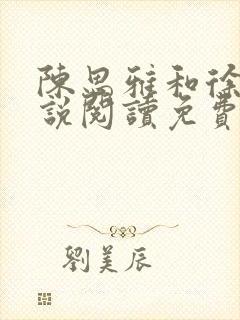 陳思雅和徐
說閱讀免費
劉美辰